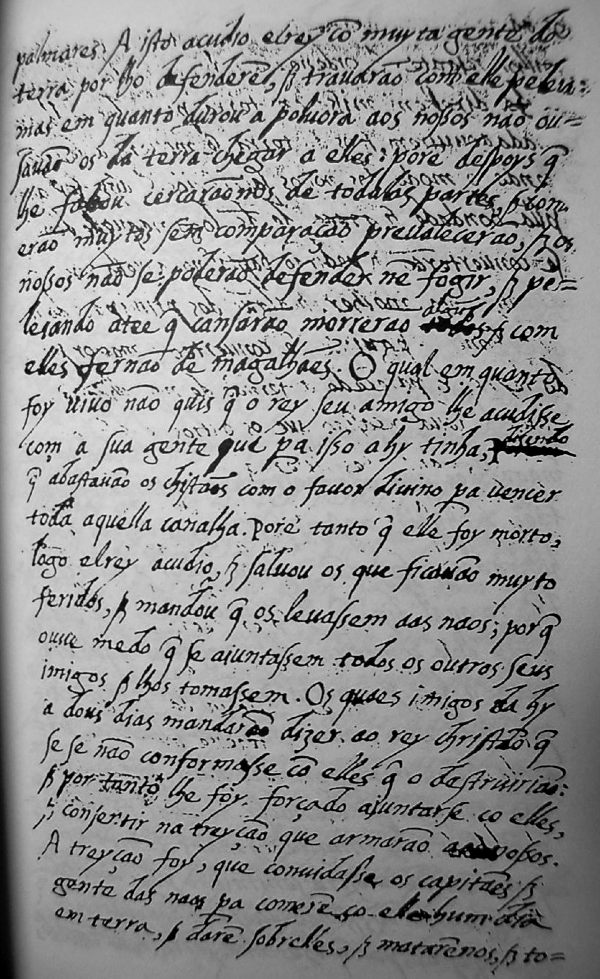 palmares. A isto acudio elrey cõ muyta gente do
terra por lho defenderẽ, & travarão com elle peleia:
mas em quanto durou a poluora aos nossos não ou-
savão os da terra chegar a elles: porẽ despoys q̃
lhe faltou cercarãonos de todalas partes, & com
erão muytos sem comparação prevalecerão, & os
nossos não se poderão defender nẽ fogir, & pe-
leiando atee q̃ cansarão morrerão algũs & com
elles fernão de magalhães. O qual em quanto
foy vivo não quis q̃ o rey seu amigo lhe acudisse
com a sua gente que pa isso ahy tinha, dizendo
q̃ abastavão os chistãos com o favor divino pa vencer
toda aquella canalha. Porẽ tanto q̃ elle foy morto,
logo elrey acudio, & salvou os que ficavão muyto
feridos, & mandou q̃ os levassem aas naos; porq̃
ouve medo q̃ se aiuntassem todos os outros seus
imigos & lhos tomassem. Os quaes imigos da hy
a dous dias mandarão dizer ao rey christão q̃
se se não conformasse cõ elles q̃ o destruirião:
& por tanto lhe foy forçado aiuntarse co elles,
& consertir na treyção que armarão aos nossos.
A treyção foy, que convidasse os capitães &
gente das naos pa comerẽ co elle hum dia
em terra, & darẽ sobrelles, & matarẽnos, & to-